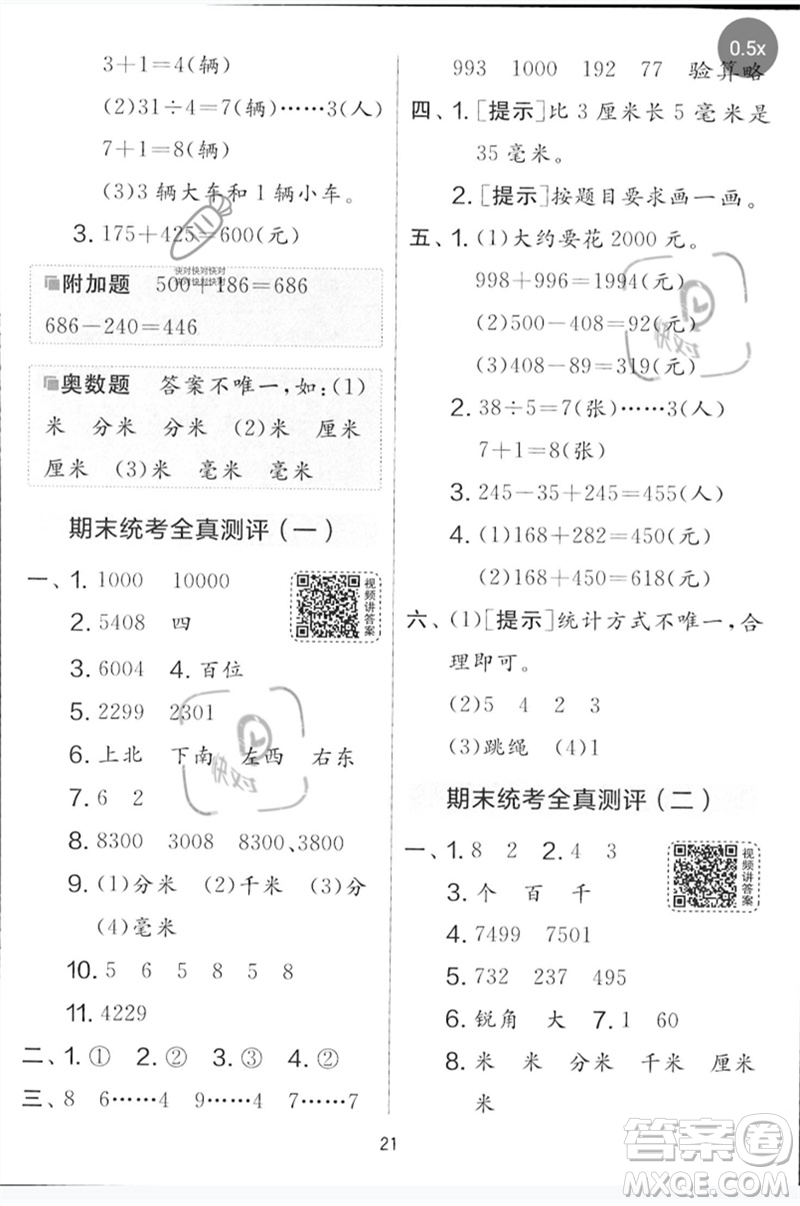 3+1=4(辆)
(2)31÷4=7(辆)……3(人)
7+1=8(辆)
(3)3辆大车和1辆小车。
3. 175+425=600(元)
快对快对快对
快对快对快对
附加题 500+186=686
686-240=446
奥数题 答案不唯一,如:(1)
米 分米 分米 (2)米 厘米
厘米 (3)米 毫米 毫米
期末统考全真测评(一)
一、1. 1000 10000
2. 5408 四
视频讲答案
3. 6004 4. 百位
5. 2299 2301
6. 上北 下南 左西 右东
7. 6 2
8. 8300 3008 8300、3800
9. (1)分米 (2)千米 (3)分
(4)毫米
10. 5 6 5 8 5 8
11. 4229
二、1. ① 2. ② 3. ③ 4. ②
三、8 6……4 9……4 7……7
993 1000 192 77 验算略
四、1. [提示]比3厘米长5毫米是
35毫米。
2. [提示]按题目要求画一画。
五、1. (1)大约要花2000元。
998+996=1994(元)
(2)500-408=92(元)
(3)408-89=319(元)
2. 38÷5=7(张)……3(人)
7+1=8(张)
3. 245-35+245=455(元)
4. (1)168+282=450(元)
(2)168+450=618(元)
六、(1)[提示]统计方式不唯一,合
理即可。
(2)5 4 2 3
(3)跳绳 (4)1
期末统考全真测评(二)
一、1. 8 2 2. 4 3
视频讲答案
3. 个 百 千
4. 7499 7501
5. 732 237 495
6. 锐角 大 7. 1 60
8. 米 米 分米 千米 厘米
米
21
0.5x
快对
快对
答案卷
MXQE.COM